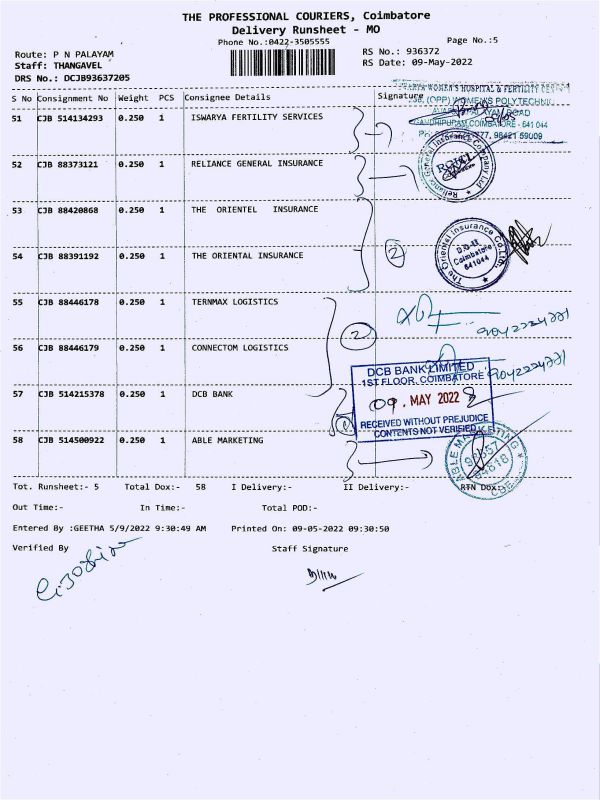 THE PROFESSIONAL COURIERS, Coimbatore
Delivery Runsheet - MO
Phone No.:0422-3505555
Page No.:5
Route: P N PALAYAM
RS No.: 936372
Staff: THANGAVEL
RS Date: 09-May-2022
DRS No.: DCJB93637205
S No Consignment No Weight PCS Consignee Details Signature
51 CJB 514134293 0.250 1 ISWARYA FERTILITY SERVICES
WOMEN'S HOSPITAL & FERTILITY
(OPP) WOMEN'S POLYTECHNIC
ROAD
COIMBATORE - 641 044
77, 98421 59009
52 CJB 88373121 0.250 1 RELIANCE GENERAL INSURANCE
Reliance General Insurance Company Ltd
53 CJB 88420868 0.250 1 THE ORIENTEL INSURANCE
2
The Oriental Insurance Co.Ltd.
Coimbatore
641044
54 CJB 88391192 0.250 1 THE ORIENTAL INSURANCE
55 CJB 88446178 0.250 1 TERNMAX LOGISTICS
2
9042224221
56 CJB 88446179 0.250 1 CONNECTOM LOGISTICS
9042224221
57 CJB 514215378 0.250 1 DCB BANK
1
DCB BANK LIMITED
1ST FLOOR, COIMBATORE
09. MAY 2022
RECEIVED WITHOUT PREJUDICE
CONTENTS NOT VERIFIED
58 CJB 514500922 0.250 1 ABLE MARKETING
ABLE MARKETING
CBE
Tot. Runsheet:- 5 Total Dox:- 58 I Delivery:- II Delivery:- RTN Dox:-
Out Time:- In Time:- Total POD:-
Entered By :GEETHA 5/9/2022 9:30:49 AM Printed On: 09-05-2022 09:30:50
Verified By Staff Signature